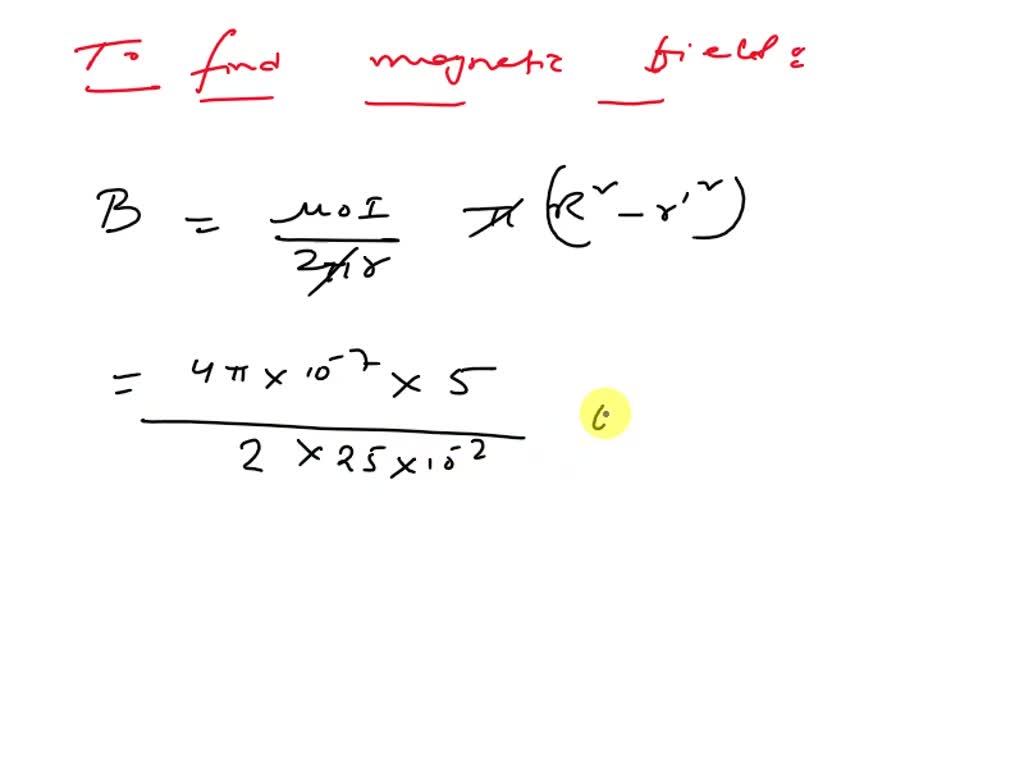 To find magnetic field:
B = μ0I / 2πr π (R² - r'²)
= 4π × 10⁻⁷ × 5 / 2 × 25 × 10⁻²  (